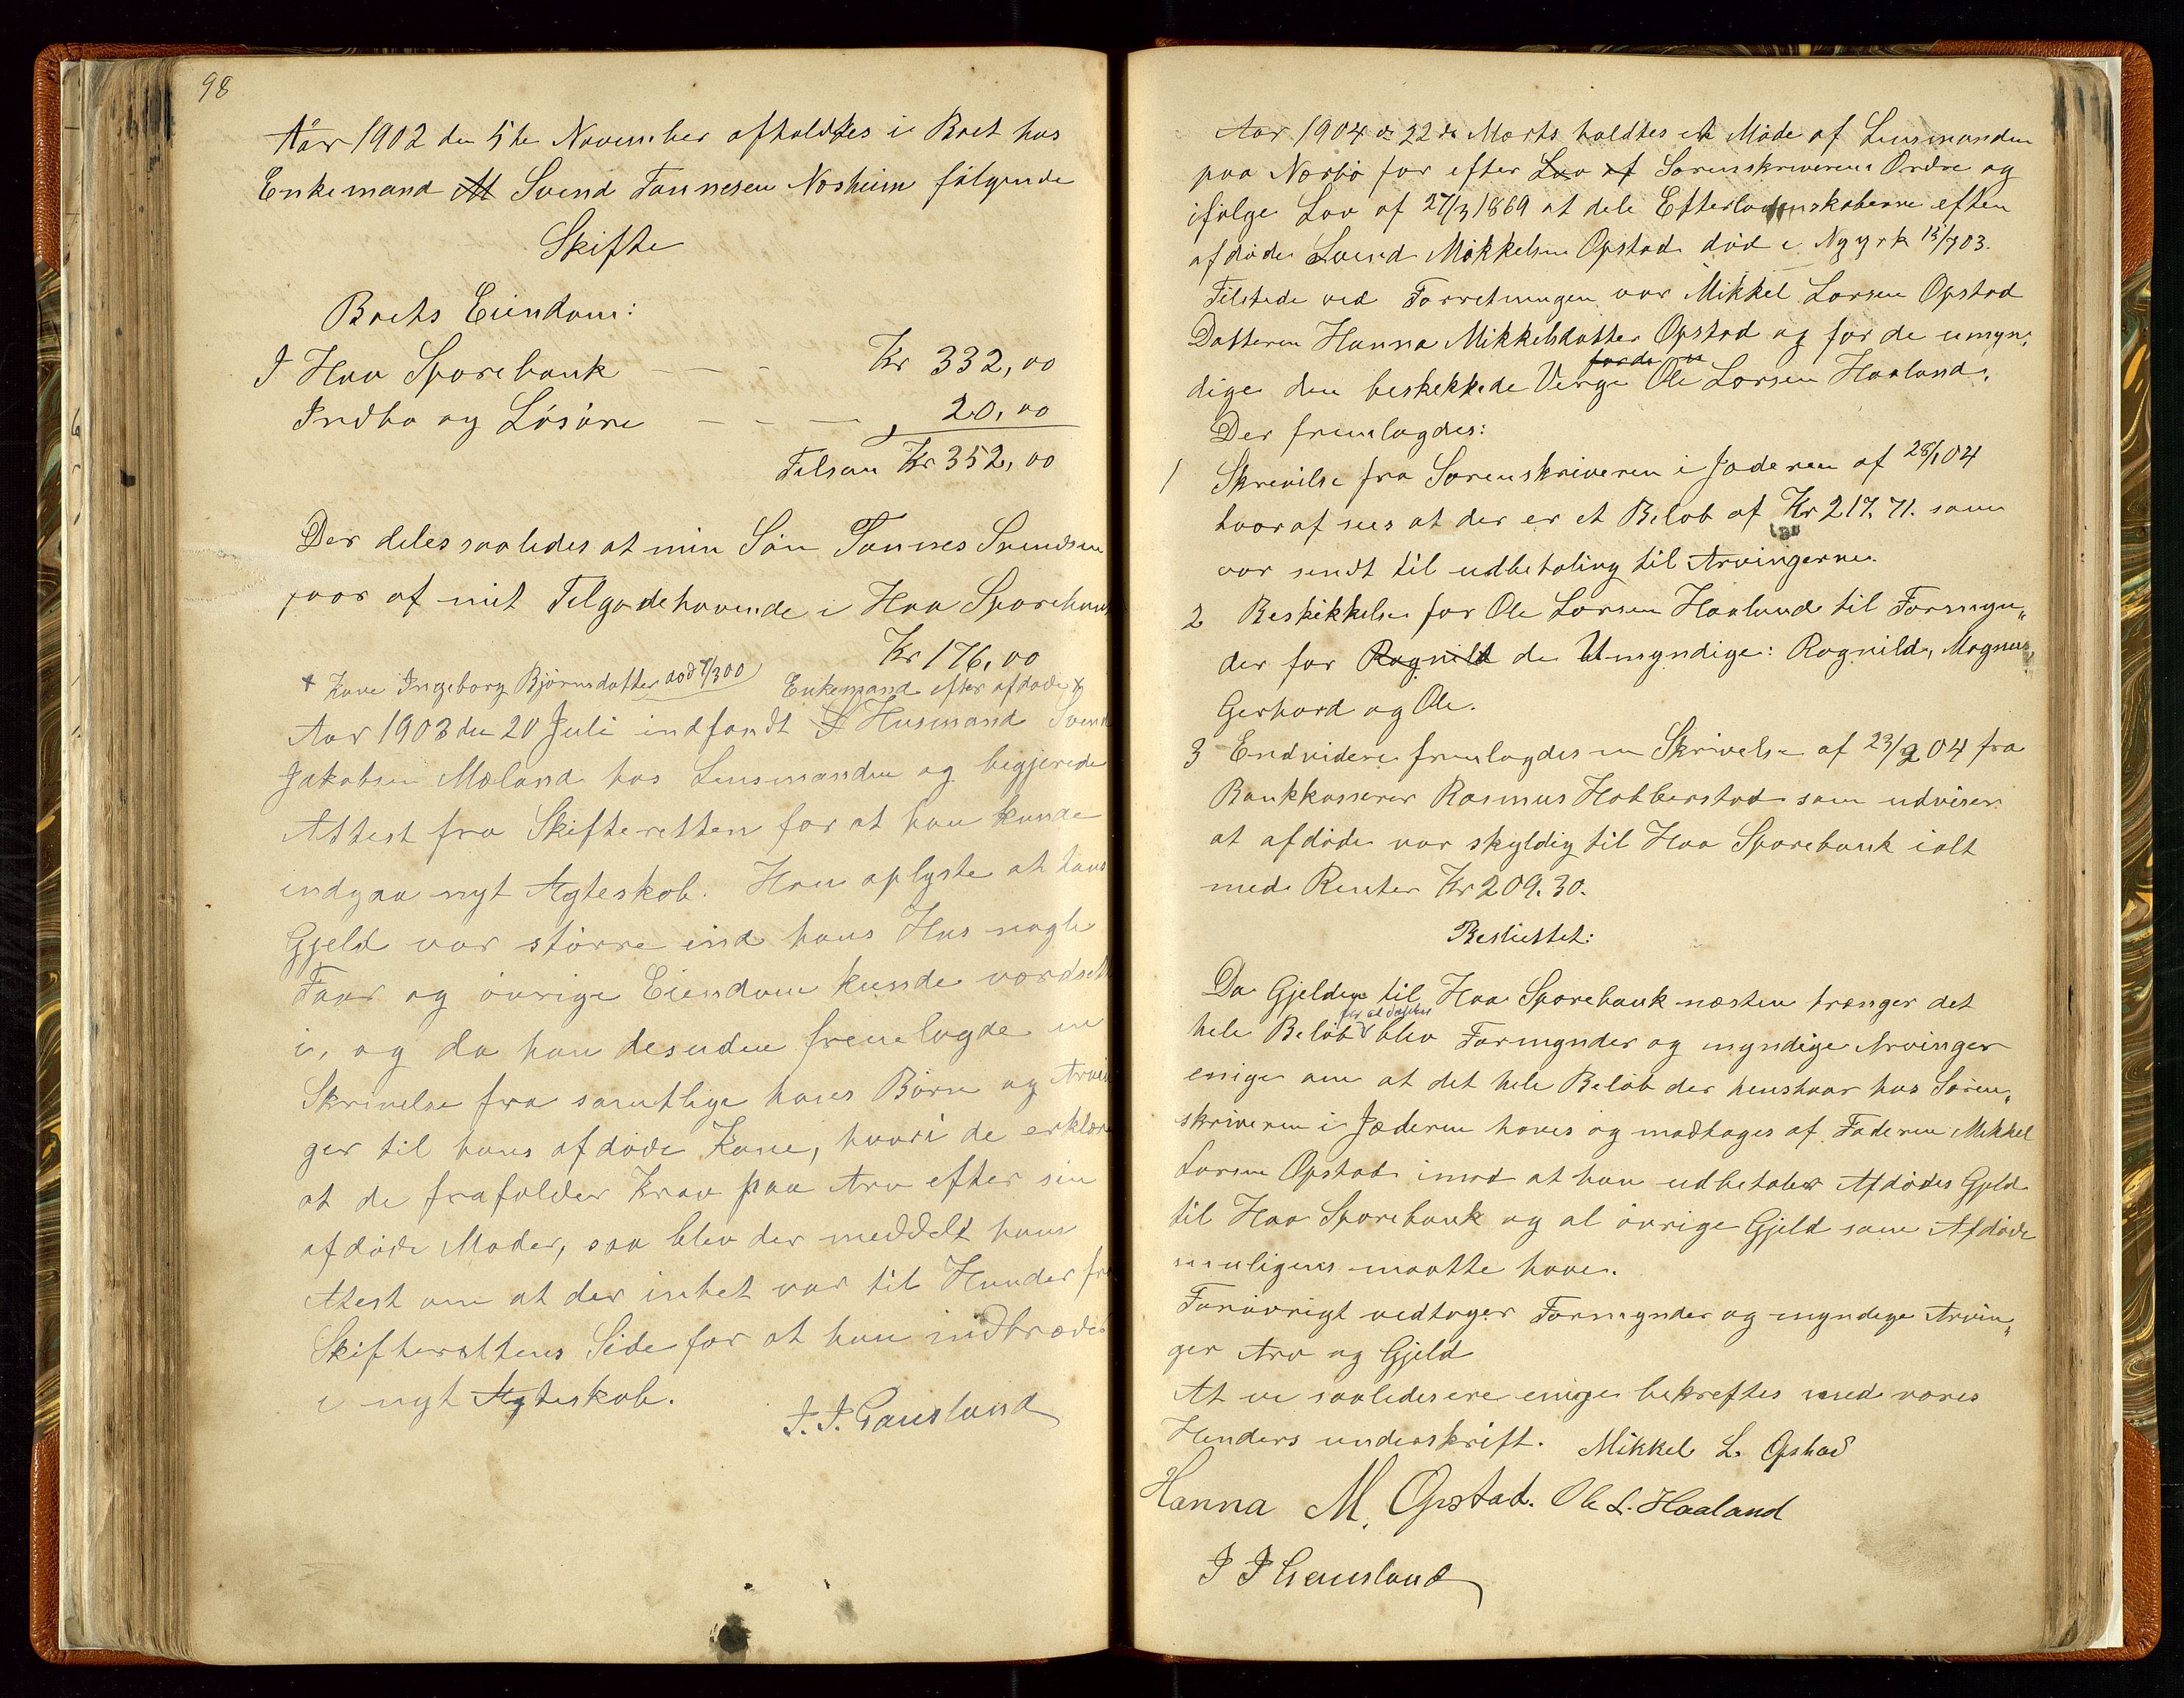 98
Aar 1902 den 5te November afholdtes i Boet hos
Enkemand Svend Tønnesen Nœsheim følgende
Skifte
Boets Eiendom:
I Haa Sparebank — — - Kr 332,00
Indbo og Løsøre — - — 20,00
Tilsam Kr 352,00
Der deles saaledes at min Søn Tønnes Svendsen
faar af mit Tilgodehavende i Haa Sparebank
Kr 176,00
* Kone Ingeborg Bjørnsdatter død 9/3 00 Enkemand efter afdøde *
Aar 1903 den 20 Juli indfandt Husmand Svend
Jakobsen Mæland hos Lensmanden og begjærede
Attest fra Skifteretten for at han kunde
indgaa nyt Ægteskab. Han oplyste at hans
Gjeld var større end hans Hus nogle
Faar og øvrige Eiendom kunde værdsett
i, og da han desuden fremlagde en
Skrivelse fra samtlige hans Børn og Arvin
ger til hans afdøde Kone, hvori de erklære
at de frafalder Krav paa Arv efter sin
afdøde Moder, saa blev der meddelt ham
Atest om at der intet var til Hinder fra
Skifterettens Side for at han indtræder
i nyt Ægteskab.
J. J. Gausland
Aar 1904 d 22de Marts holdtes et Møde af Lensmanden
paa Nærbø for efter Lov af Sorenskriverens Ordre og
ifølge Lov af 27/3 1869 at dele Efterladenskaberne efter
afdøde Svend Mikkelsen Opstad død i Nyyrk 13/7 03.
Tilstede ved Forretningen var Mikkel Larsen Opstad
Datteren Hanna Mikkelsdatter Opstad og for de umyn-
dige den beskikkede Verge Ole Larsen Haaland.
Der fremlagdes:
1 Skrivelse fra Sorenskriveren i Jæderen af 28/1 04
hvoraf sees at der er et Beløb af Kr 217.71. som
var sendt til udbetaling til Arvingerne.
2 Beskikkelse for Ole Larsen Haaland til Formyn„
der for Ragnild de Umyndige: Ragnilde, Magnus
Gerhard og Ole.
3 Endvidere fremlagdes en Skrivelse af 23/2 04 fra
Bankkasserer Rasmus Hobberstad som udviser
at afdøde var skyldig til Haa Sparebank ialt
med Renter Kr 209.30.
Besluttet:
Da Gjelden til Haa Sparebank næsten trænger det
hele Beløb blev Formynder og myndige Arvinger
enige om at det hele Beløb der henstaar hos Soren„
skriveren i Jæderen haves og modtages af Faderen Mikkel
Larsen Opstad imod at han udbetaler Afdødes Gjeld
til Haa Sparebank og al øvrige Gjeld som Afdøde
muligens maatte have.
Forøvrigt vedtager Formynder og myndige Arvin„
ger Arv og Gjeld
At vi saaledes ere enige bekreftes med vores
Henders underskrift. Mikkel L. Opstad
Hanna M. Opstad. Ole L. Haaland
J J Gausland